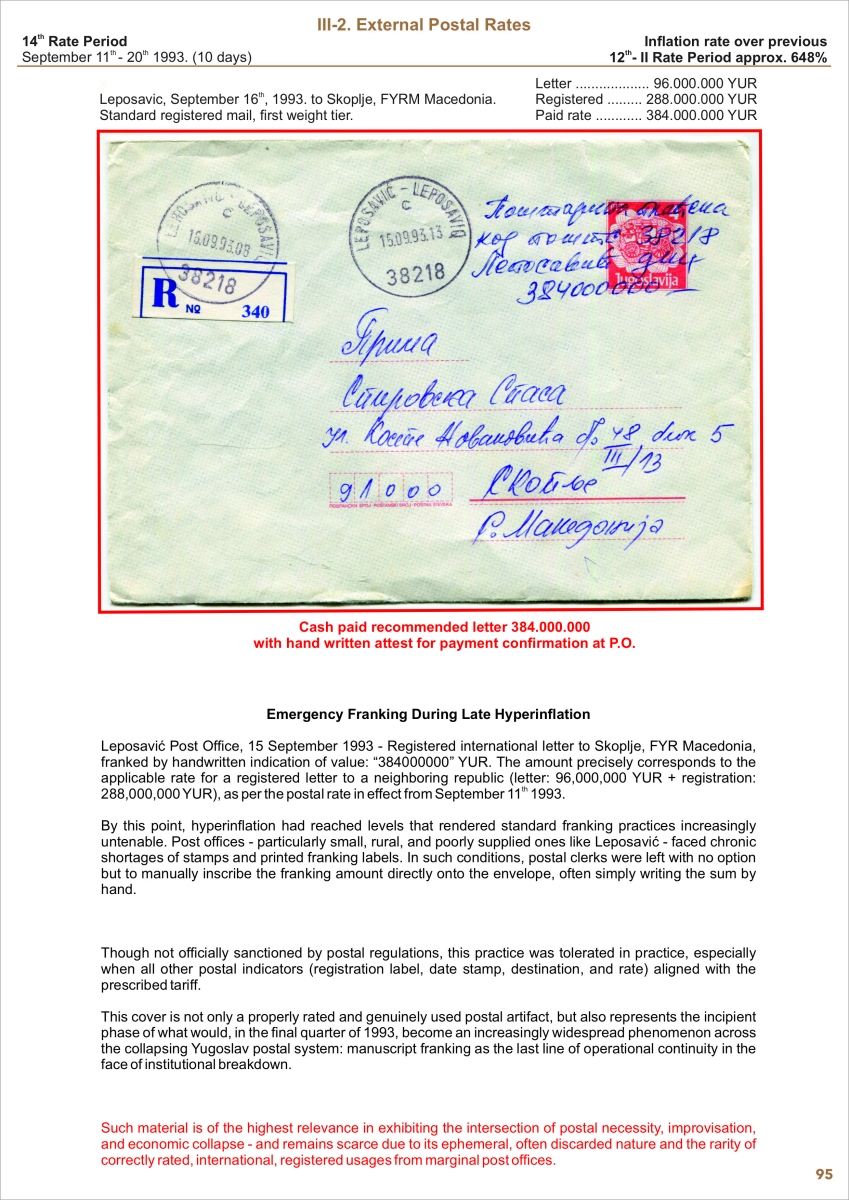 III-2. External Postal Rates
14th Rate Period
September 11th - 20th 1993. (10 days)
Inflation rate over previous
12th- II Rate Period approx. 648%
Leposavic, September 16th, 1993. to Skoplje, FYRM Macedonia.
Standard registered mail, first weight tier.
Letter ................... 96.000.000 YUR
Registered ......... 288.000.000 YUR
Paid rate ............ 384.000.000 YUR
LEPOSAVIĆ - LEPOSAVIQ
C
15.09.93.08
38218
R
№ 340
LEPOSAVIĆ - LEPOSAVIQ
C
15.09.93.13
38218
Поштарина плаћена
код поште 38218
Лепосавић дин
384000000
Jugoslavija
Прима
Стировска Спаса
ул. Косте Новаковића бр. 48 5
III/13
91000
Скопље
Р. Македонија
Cash paid recommended letter 384.000.000
with hand written attest for payment confirmation at P.O.
Emergency Franking During Late Hyperinflation
Leposavić Post Office, 15 September 1993 - Registered international letter to Skoplje, FYR Macedonia,
franked by handwritten indication of value: “384000000” YUR. The amount precisely corresponds to the
applicable rate for a registered letter to a neighboring republic (letter: 96,000,000 YUR + registration:
288,000,000 YUR), as per the postal rate in effect from September 11th 1993.
By this point, hyperinflation had reached levels that rendered standard franking practices increasingly
untenable. Post offices - particularly small, rural, and poorly supplied ones like Leposavić - faced chronic
shortages of stamps and printed franking labels. In such conditions, postal clerks were left with no option
but to manually inscribe the franking amount directly onto the envelope, often simply writing the sum by
hand.
Though not officially sanctioned by postal regulations, this practice was tolerated in practice, especially
when all other postal indicators (registration label, date stamp, destination, and rate) aligned with the
prescribed tariff.
This cover is not only a properly rated and genuinely used postal artifact, but also represents the incipient
phase of what would, in the final quarter of 1993, become an increasingly widespread phenomenon across
the collapsing Yugoslav postal system: manuscript franking as the last line of operational continuity in the
face of institutional breakdown.
Such material is of the highest relevance in exhibiting the intersection of postal necessity, improvisation,
and economic collapse - and remains scarce due to its ephemeral, often discarded nature and the rarity of
correctly rated, international, registered usages from marginal post offices.
95